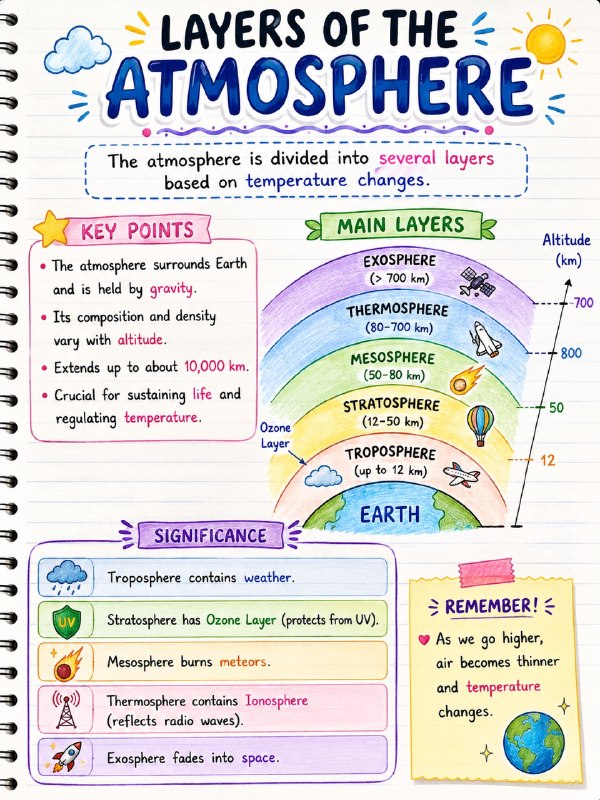 LAYERS OF THE
ATMOSPHERE
The atmosphere is divided into several layers
based on temperature changes.
KEY POINTS
• The atmosphere surrounds Earth
and is held by gravity.
• Its composition and density
vary with altitude.
• Extends up to about 10,000 km.
• Crucial for sustaining life and
regulating temperature.
MAIN LAYERS
Altitude
(km)
EXOSPHERE
(> 700 km)
700
THERMOSPHERE
(80-700 km)
800
MESOSPHERE
(50-80 km)
50
STRATOSPHERE
(12-50 km)
Ozone
Layer
TROPOSPHERE
(up to 12 km)
12
EARTH
SIGNIFICANCE
Troposphere contains weather.
UV
Stratosphere has Ozone Layer (protects from UV).
Mesosphere burns meteors.
Thermosphere contains Ionosphere
(reflects radio waves).
Exosphere fades into space.
REMEMBER!
As we go higher,
air becomes thinner
and temperature
changes.